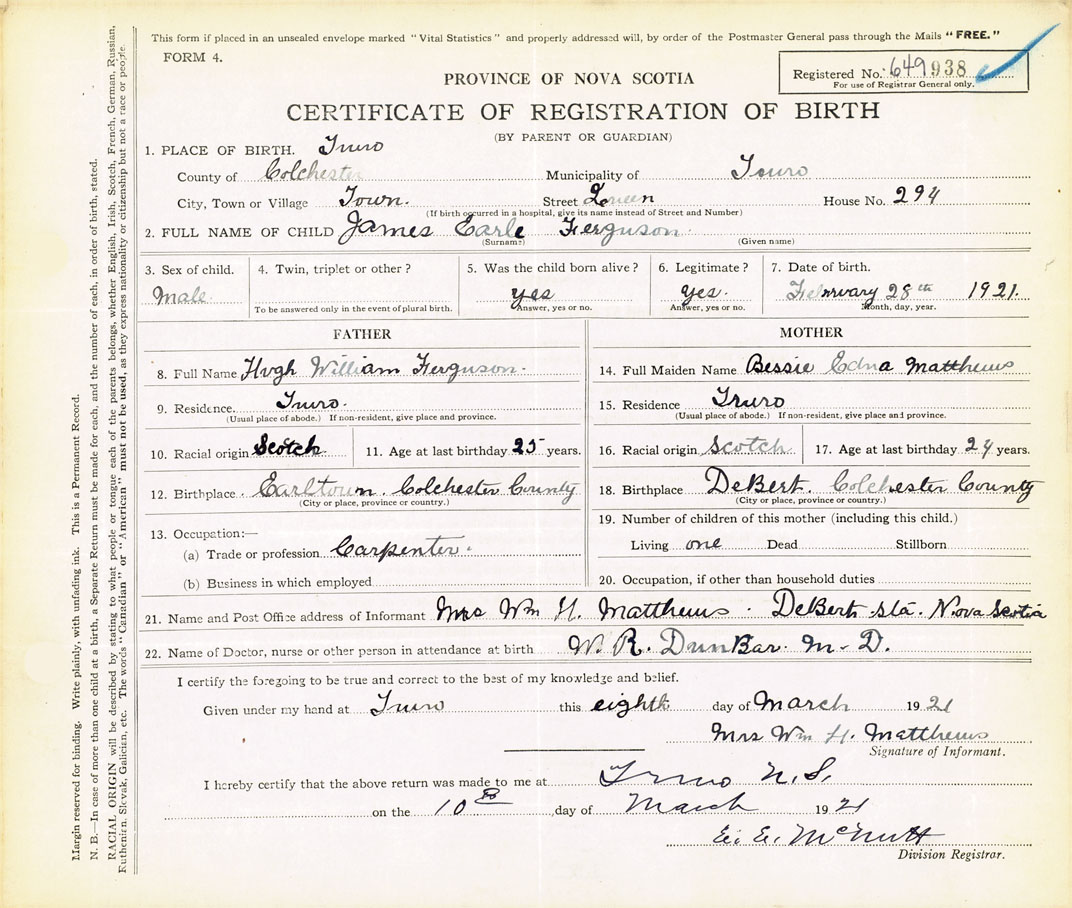 This form if placed in an unsealed envelope marked "Vital Statistics" and properly addressed will, by order of the Postmaster General pass through the Mails "FREE."
FORM 4.
Registered No. 649938
For use of Registrar General only.
PROVINCE OF NOVA SCOTIA
CERTIFICATE OF REGISTRATION OF BIRTH
(BY PARENT OR GUARDIAN)
1. PLACE OF BIRTH. Truro
County of Colchester Municipality of Truro
City, Town or Village Town. Street Queen House No. 294
(If birth occurred in a hospital, give its name instead of Street and Number)
2. FULL NAME OF CHILD James Earle Ferguson
(Surname) (Given name)
3. Sex of child. 4. Twin, triplet or other? 5. Was the child born alive? 6. Legitimate? 7. Date of birth.
Male yes yes. February 28th 1921.
To be answered only in the event of plural birth. Answer, yes or no. Answer, yes or no. Month, day, year.
FATHER
8. Full Name Hugh William Ferguson.
9. Residence. Truro.
(Usual place of abode.) If non-resident, give place and province.
10. Racial origin Scotch 11. Age at last birthday 25 years.
12. Birthplace Earltown. Colchester County
(City or place, province or country.)
13. Occupation:—
(a) Trade or profession Carpenter.
(b) Business in which employed
MOTHER
14. Full Maiden Name Bessie Edna Matthews
15. Residence Truro
(Usual place of abode.) If non-resident, give place and province.
16. Racial origin Scotch 17. Age at last birthday 24 years.
18. Birthplace DeBert. Colchester County
(City or place, province or country.)
19. Number of children of this mother (including this child.)
Living one Dead Stillborn
20. Occupation, if other than household duties
21. Name and Post Office address of Informant Mrs Wm H. Matthews. DeBert Sta. Nova Scotia
22. Name of Doctor, nurse or other person in attendance at birth W. R. DunBar. M. D.
I certify the foregoing to be true and correct to the best of my knowledge and belief.
Given under my hand at Truro this eighth day of March 1921
Mrs Wm H. Matthews
Signature of Informant.
I hereby certify that the above return was made to me at Truro N.S.
on the 10th day of March 1921
E. E. McNutt
Division Registrar.
Margin reserved for binding. Write plainly, with unfading ink. This is a Permanent Record.
N. B.—In case of more than one child at a birth, a Separate Return must be made for each, and the number of each, in order of birth, stated.
RACIAL ORIGIN will be described by stating to what people or tongue each of the parents belongs, whether English, Irish, Scotch, French, German, Russian,
Ruthenien, Slovak, Galician, etc. The words "Canadian" or "American" must not be used, as they express nationality or citizenship but not a race or people.